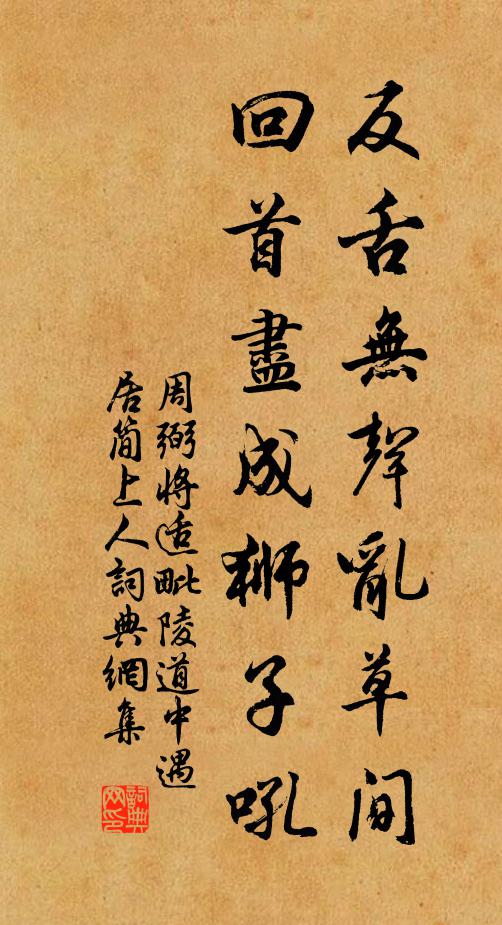 反舌無聲亂草間
回首盡成獅子吼
周弼將適毗陵道中遇
居簡上人詞典網集
詞典網印